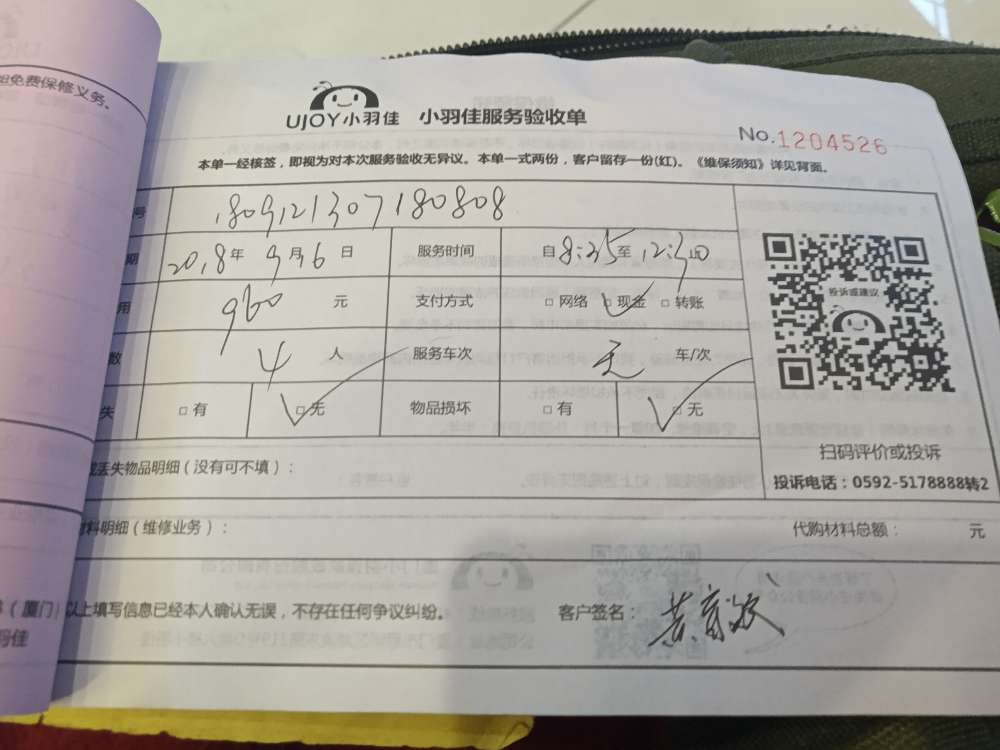 担免费保修义务。
UJOY小羽佳 小羽佳服务验收单
No.1204526
本单一经核签，即视为对本次服务验收无异议。本单一式两份，客户留存一份(红)。《维保须知》详见背面。
号 1809121307180808
期 2018年 9月6日 服务时间 自8:25至12:30止
用 960 元 支付方式 □ 网络 □ 现金 □ 转账
数 4 人 服务车次 无 车/次
失 □ 有 □ 无 物品损坏 □ 有 □ 无
投诉或建议
扫码评价或投诉
投诉电话：0592-5178888转2
丢失物品明细（没有可不填）：
材料明细（维修业务）： 代购材料总额： 元
（厦门）以上填写信息已经本人确认无误，不存在任何争议纠纷。 客户签名：
羽佳